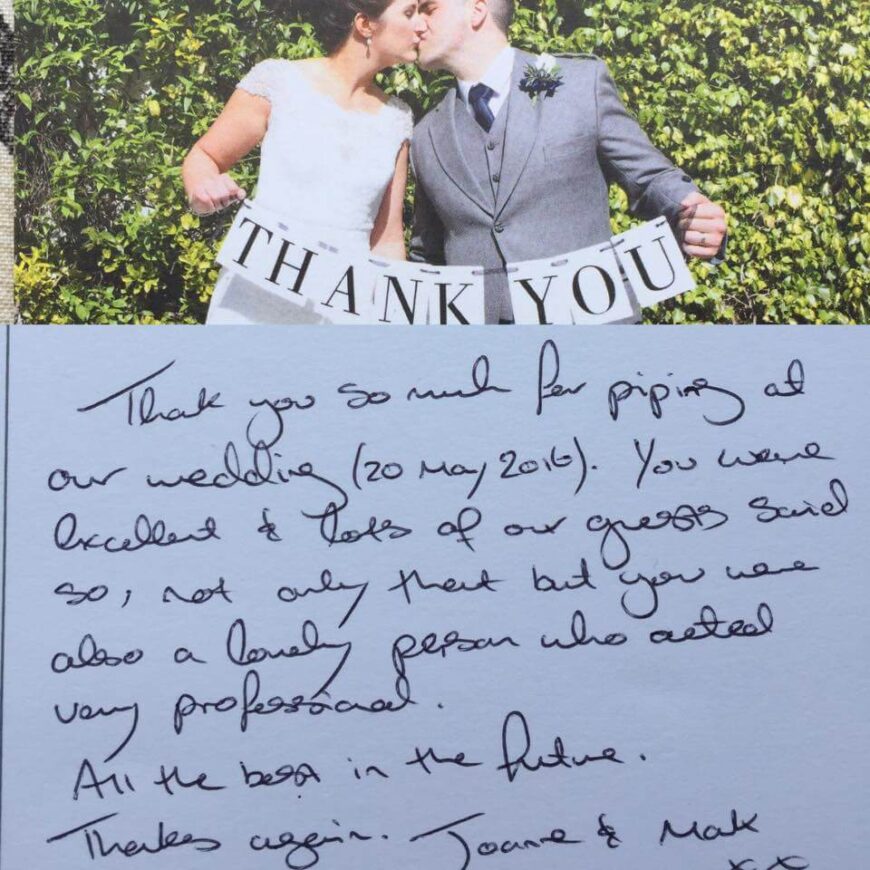 THANK YOU
Thank you so much for piping at
our wedding (20 May 2016). You were
excellent & lots of our guests said
so, not only that but you were
also a lovely person who acted
very professional.
All the best in the future.
Thanks again. Joanne & Mark
xx